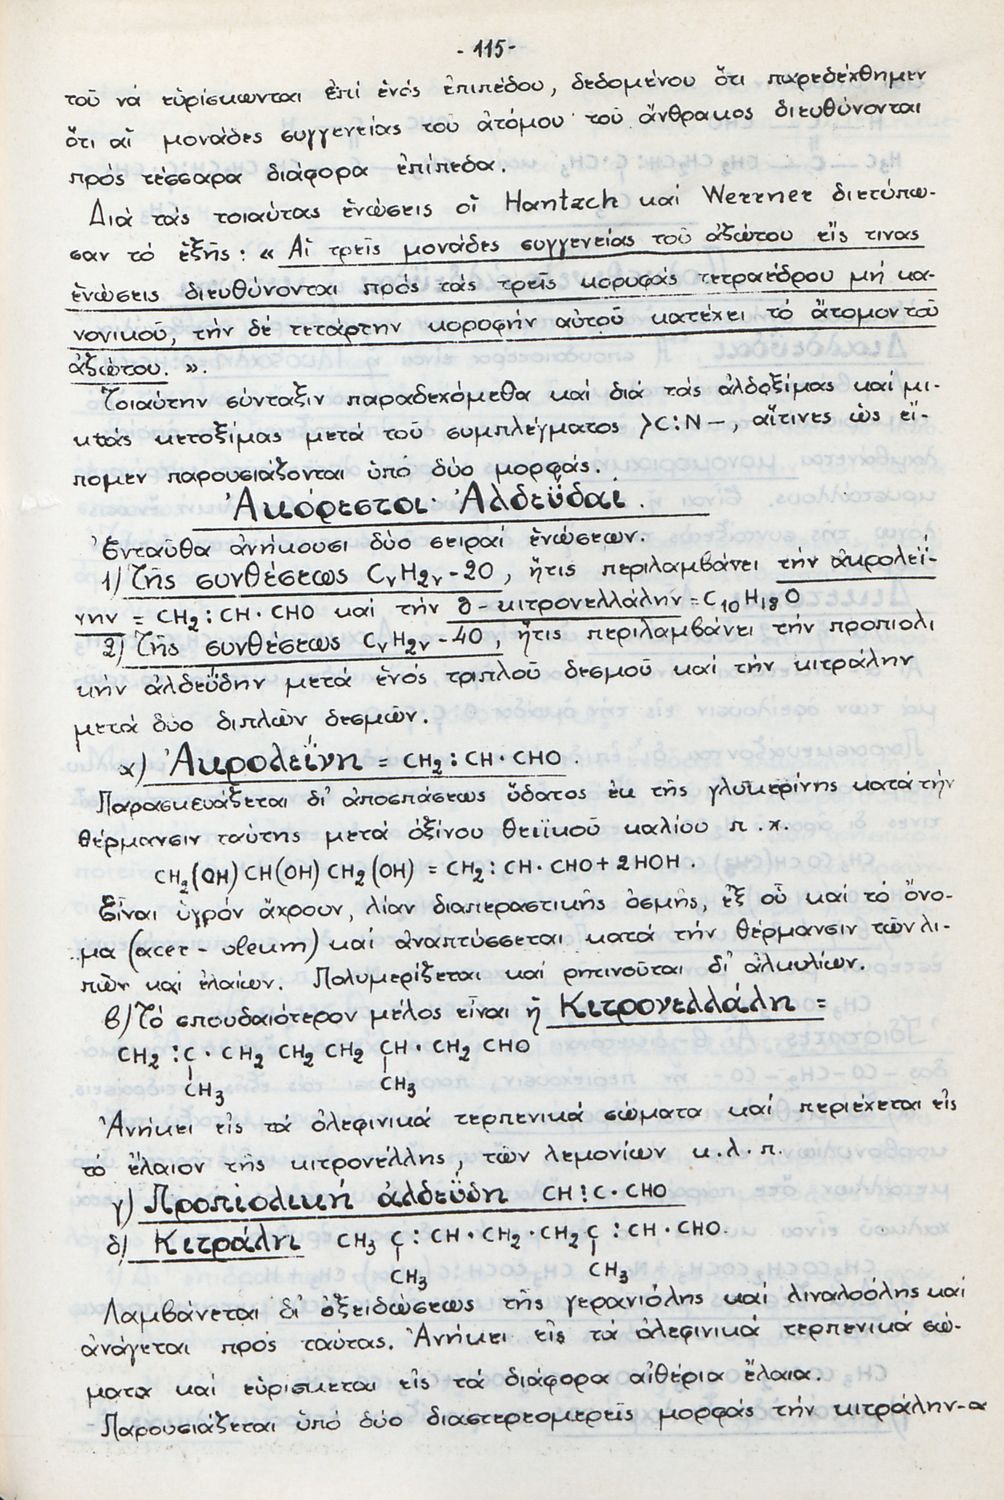 - 115 -
τοῦ νά εὑρίσκωνται ἐπί ἑνός ἐπιπέδου, δεδομένου ὅτι παρεδέχθημεν
ὅτι αἱ μονάδες συγγενείας τοῦ ἀτόμου τοῦ ἄνθρακος διευθύνονται
πρός τέσσαρα διάφορα ἐπίπεδα.
Διά τάς τοιαύτας ἑνώσεις οἱ Hantzch καί Werrner διετύπω-
σαν τό ἑξῆς: « Αἱ τρεῖς μονάδες συγγενείας τοῦ ἀζώτου εἴς τινας
ἑνώσεις διευθύνονται πρός τάς τρεῖς κορυφάς τετραέδρου μή κα-
νονικοῦ, τήν δέ τετάρτην κορυφήν αὐτοῦ κατέχει τό ἄτομον τοῦ
ἀζώτου. ».
Τοιαύτην σύνταξιν παραδεχόμεθα καί διά τάς ἀλδοξίμας καί μι-
κτάς κετοξίμας μετά τοῦ συμπλέγματος >C:N-, αἵτινες ὡς εἴ-
πομεν παρουσιάζονται ὑπό δύο μορφάς.
Ἀκόρεστοι Ἀλδεΰδαι.
Ἐνταῦθα ἀνήκουσι δύο σειραί ἑνώσεων.
1) Τῆς συνθέσεως CνH2ν-2O, ἥτις περιλαμβάνει τήν ἀκρολεΐ-
νην = CH2:CH·CHO καί τήν δ-κιτρονελλάλην = C10H18O
2) Τῆς συνθέσεως CνH2ν-4O, ἥτις περιλαμβάνει τήν προπιολι
κήν ἀλδεΰδην μετά ἑνός τριπλοῦ δεσμοῦ καί τήν κιτράλην
μετά δύο διπλῶν δεσμῶν.
α) Ἀκρολεΐνη = CH2:CH·CHO.
Παρασκευάζεται δι' ἀποσπάσεως ὕδατος ἐκ τῆς γλυκερίνης κατά τήν
θέρμανσιν ταύτης μετά ὀξίνου θειϊκοῦ καλίου π.χ.
CH2(OH)CH(OH)CH2(OH) = CH2:CH·CHO + 2HOH.
Εἶναι ὑγρόν ἄχρουν, λίαν διαπεραστικῆς ὀσμῆς, ἐξ οὗ καί τό ὄνο-
μα (acer-oleum) καί ἀναπτύσσεται κατά τήν θέρμανσιν τῶν λι-
πῶν καί ἐλαίων. Πολυμερίζεται καί ρητινοῦται δι' ἀλκυλίων.
β) Τό σπουδαιότερον μέλος εἶναι ἡ Κιτρονελλάλη =
CH2:C·CH2 CH2 CH2 CH·CH2 CHO
CH3 CH3
Ἀνήκει εἰς τά ὀλεφινικά τερπενικά σώματα καί περιέχεται εἰς
τό ἔλαιον τῆς κιτρονέλλης, τῶν λεμονίων κ.λ.π.
γ) Προπιολική ἀλδεΰδη CH⁝C·CHO
δ) Κιτράλη CH3 C:CH·CH2·CH2 C:CH·CHO.
CH3 CH3
Λαμβάνεται δι' ὀξειδώσεως τῆς γερανιόλης καί λιναλοόλης καί
ἀνάγεται πρός ταύτας. Ἀνήκει εἰς τά ὀλεφινικά τερπενικά σώ-
ματα καί εὑρίσκεται εἰς τά διάφορα αἰθέρια ἔλαια.
Παρουσιάζεται ὑπό δύο διαστερεομερεῖς μορφάς τήν κιτράλην-α